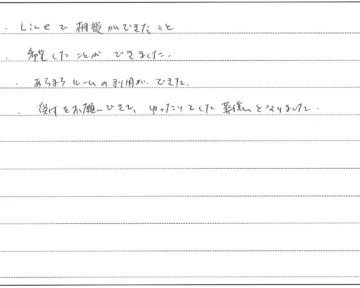 ・Lineで相談ができたこと
・希望したことができました。
・あろまろルームの利用ができた。
・後付をお願いできて、ゆったりとした葬儀となりました。